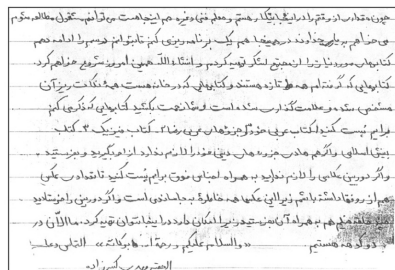 چون مقداری از وقتم را در اینجا بیکار هستم و معلم فنی و غیره هم اینجا هست می‌توانم مشغول مطالعه شوم
می‌خواهم به یاری خداوند در همینجا هم یک برنامه‌ریزی کنم تا بتوانم درسم را ادامه دهم
کتابهای مورد نیاز را از لشکر تهیه کردم و انشاء الله همین امروز شروع خواهم کرد.
کتابهایی که گرفته‌ام همه تازه هستند و کتابهایی که در خانه هست همه نکات ریز آن
مشخص شده و علامت گذاری شده است و زحمت بکشید کتابهایی که ذکر می‌کنم
برایم پست کنید کتاب عربی جزوه‌های عربی رضا ۲. کتاب فیزیک ۳. کتاب
بینش اسلامی و اگر هم هادی جزوه‌های دینی خود را لازم ندارد از او بگیرید و بفرستید.
و اگر دوربین عکاسی را لازم ندارید به همراه اجناس فوق برایم پست کنید تا تعدادی عکس
هم از رفقا داشته باشم زیرا این عکسها همه خاطره به جا ماندنی است و اگر دوربین را فرستادید
فیلم هم به همراه آن بفرستید زیرا امکان دارد در اینجا نتوان تهیه کرد.
هستیم. «والسلام علیکم و رحمة الله و برکاته» التماس دعا
الحقیر